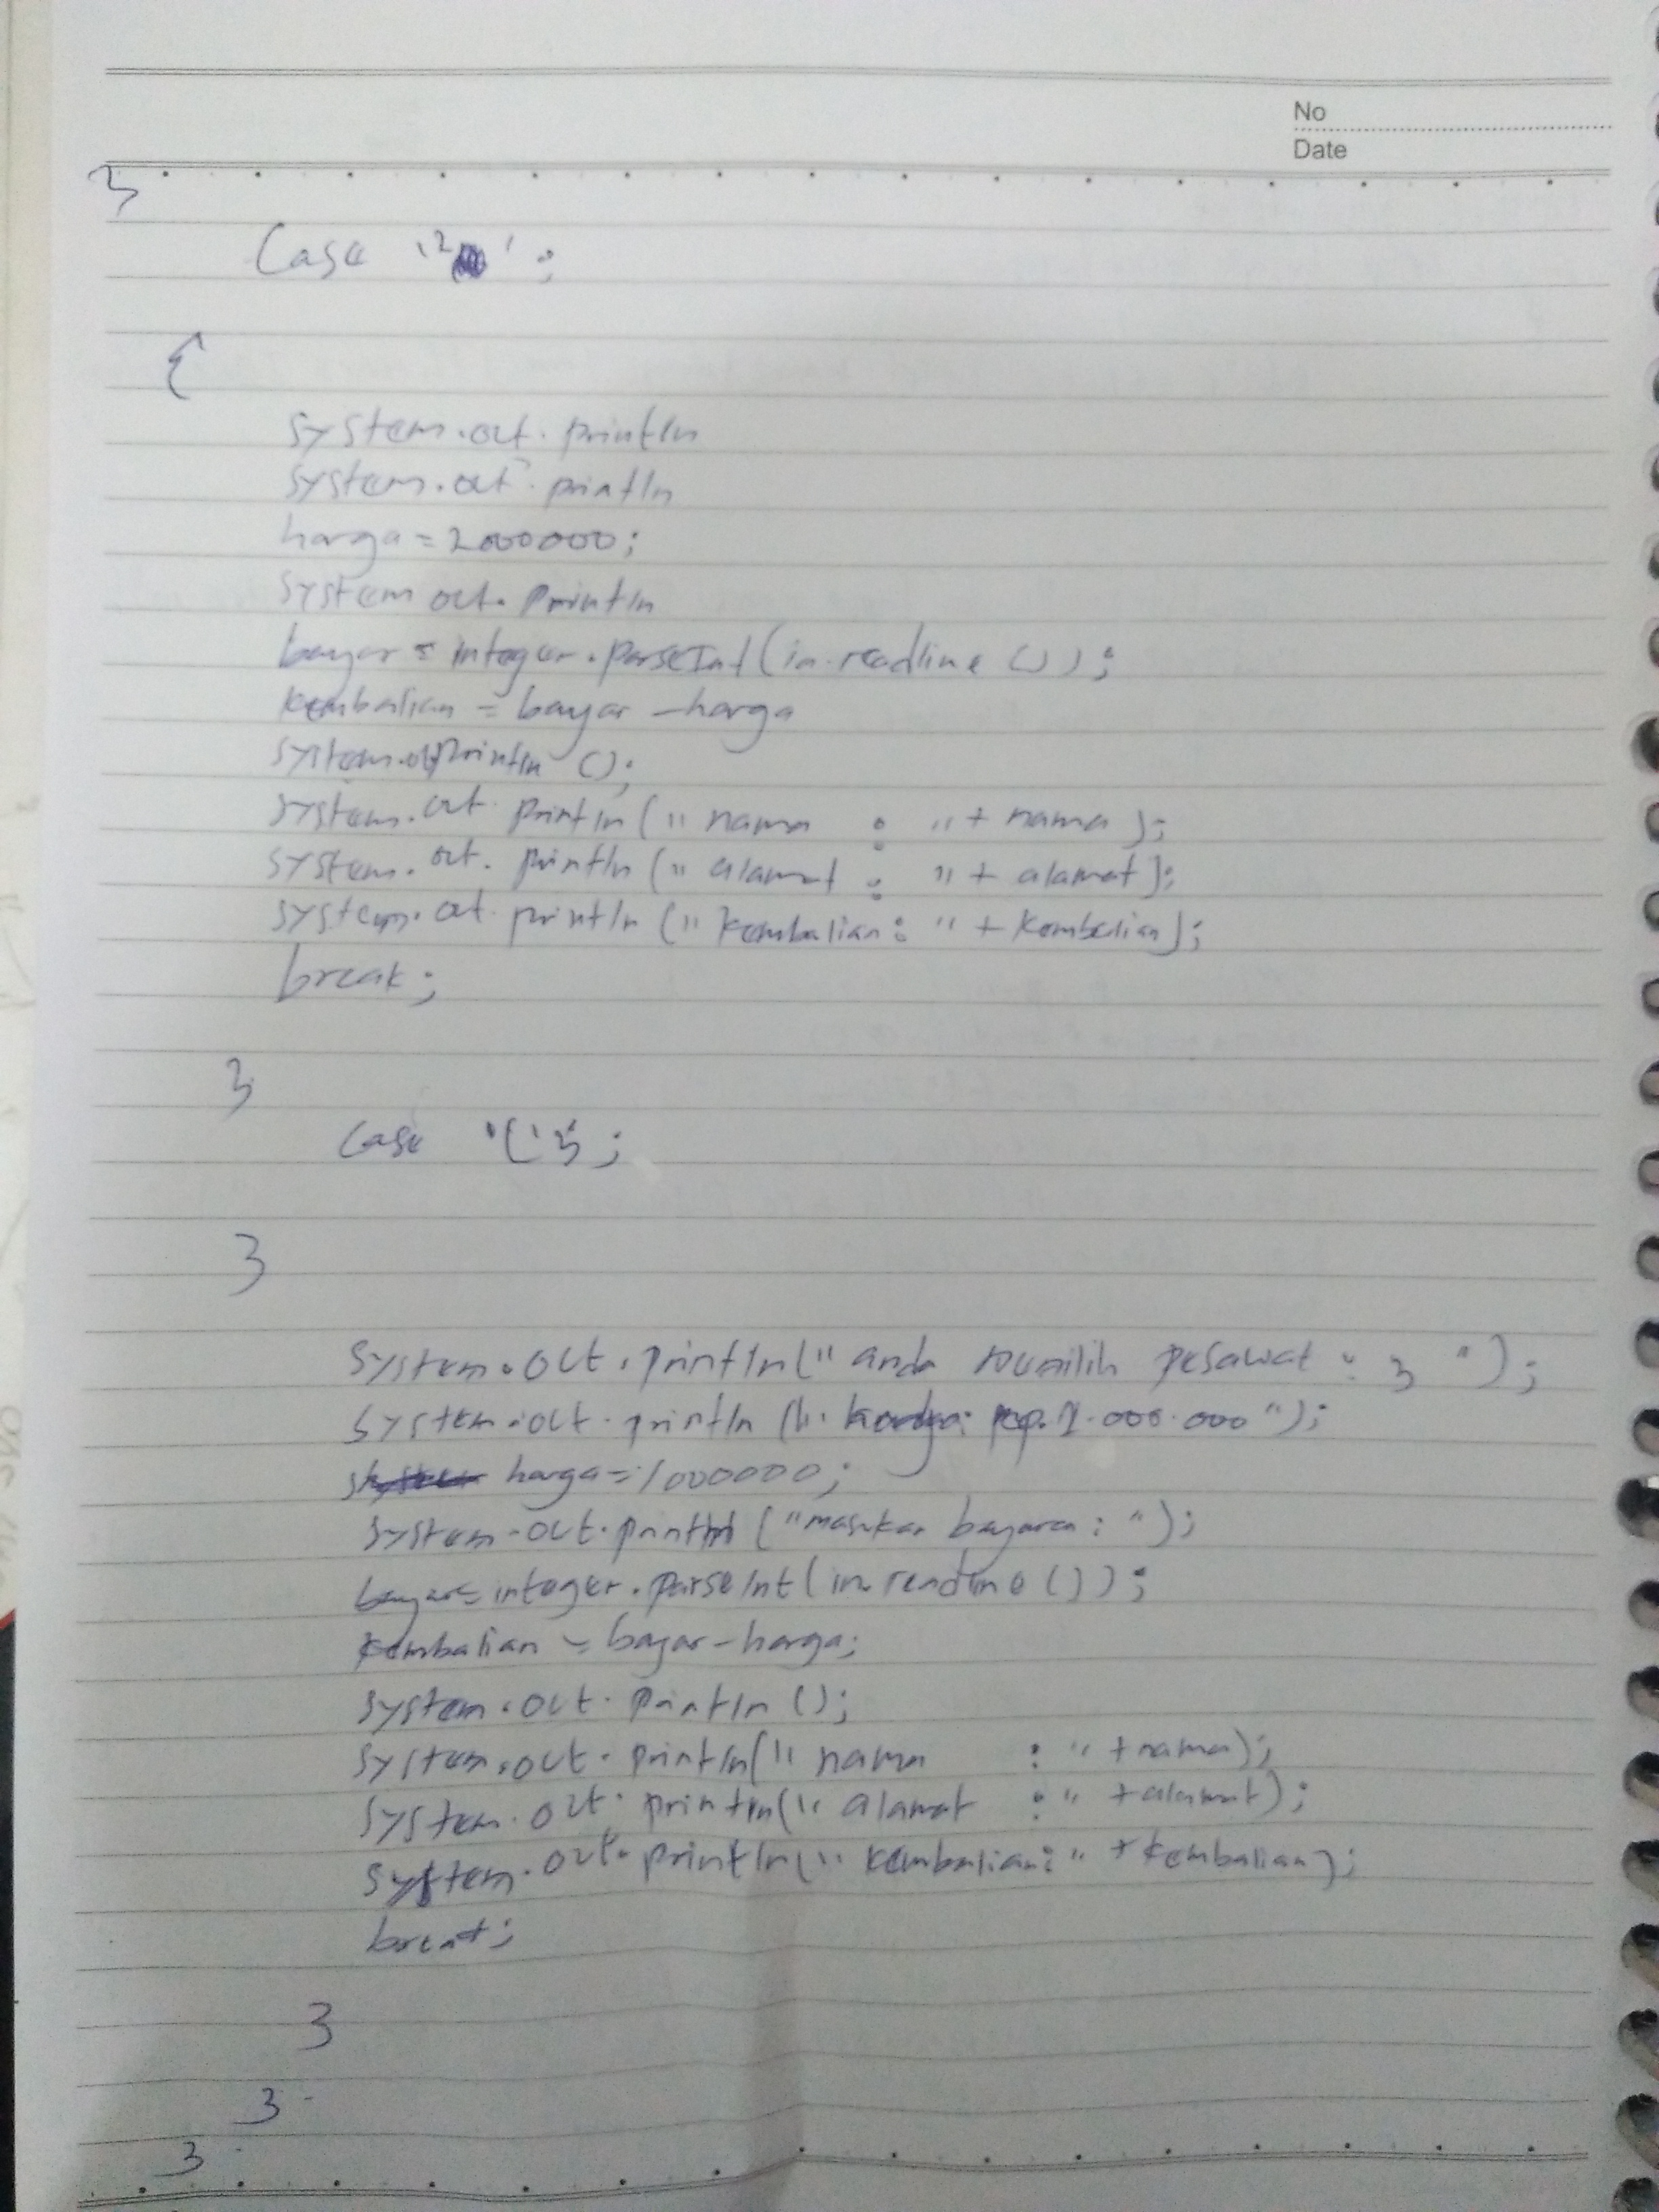 No
Date
}
Case '2 ' ;
{
system.out.println
system.out.println
harga = 2000000;
system out.println
bayar = integer.parseInt(in.readline ());
kembalian = bayar - harga
system.out println ();
system.out.println (" nama : " + nama );
system.out.println (" alamat : " + alamat );
system.out.println (" kembalian : " + kembalian );
break;
}
Case '3' ;
}
system.out.println (" anda memilih pesawat : 3 ");
system.out.println (" harga: Rp. 1.000.000 ");
harga = 1000000;
system.out.println ("masukan bayaran : ");
bayar = integer.parseInt(in.readline ());
kembalian = bayar - harga;
system.out.println ();
system.out.println(" nama : " + nama);
system.out.println(" alamat : " + alamat);
system.out.println(" kembalian: " + kembalian);
break;
}
}
}